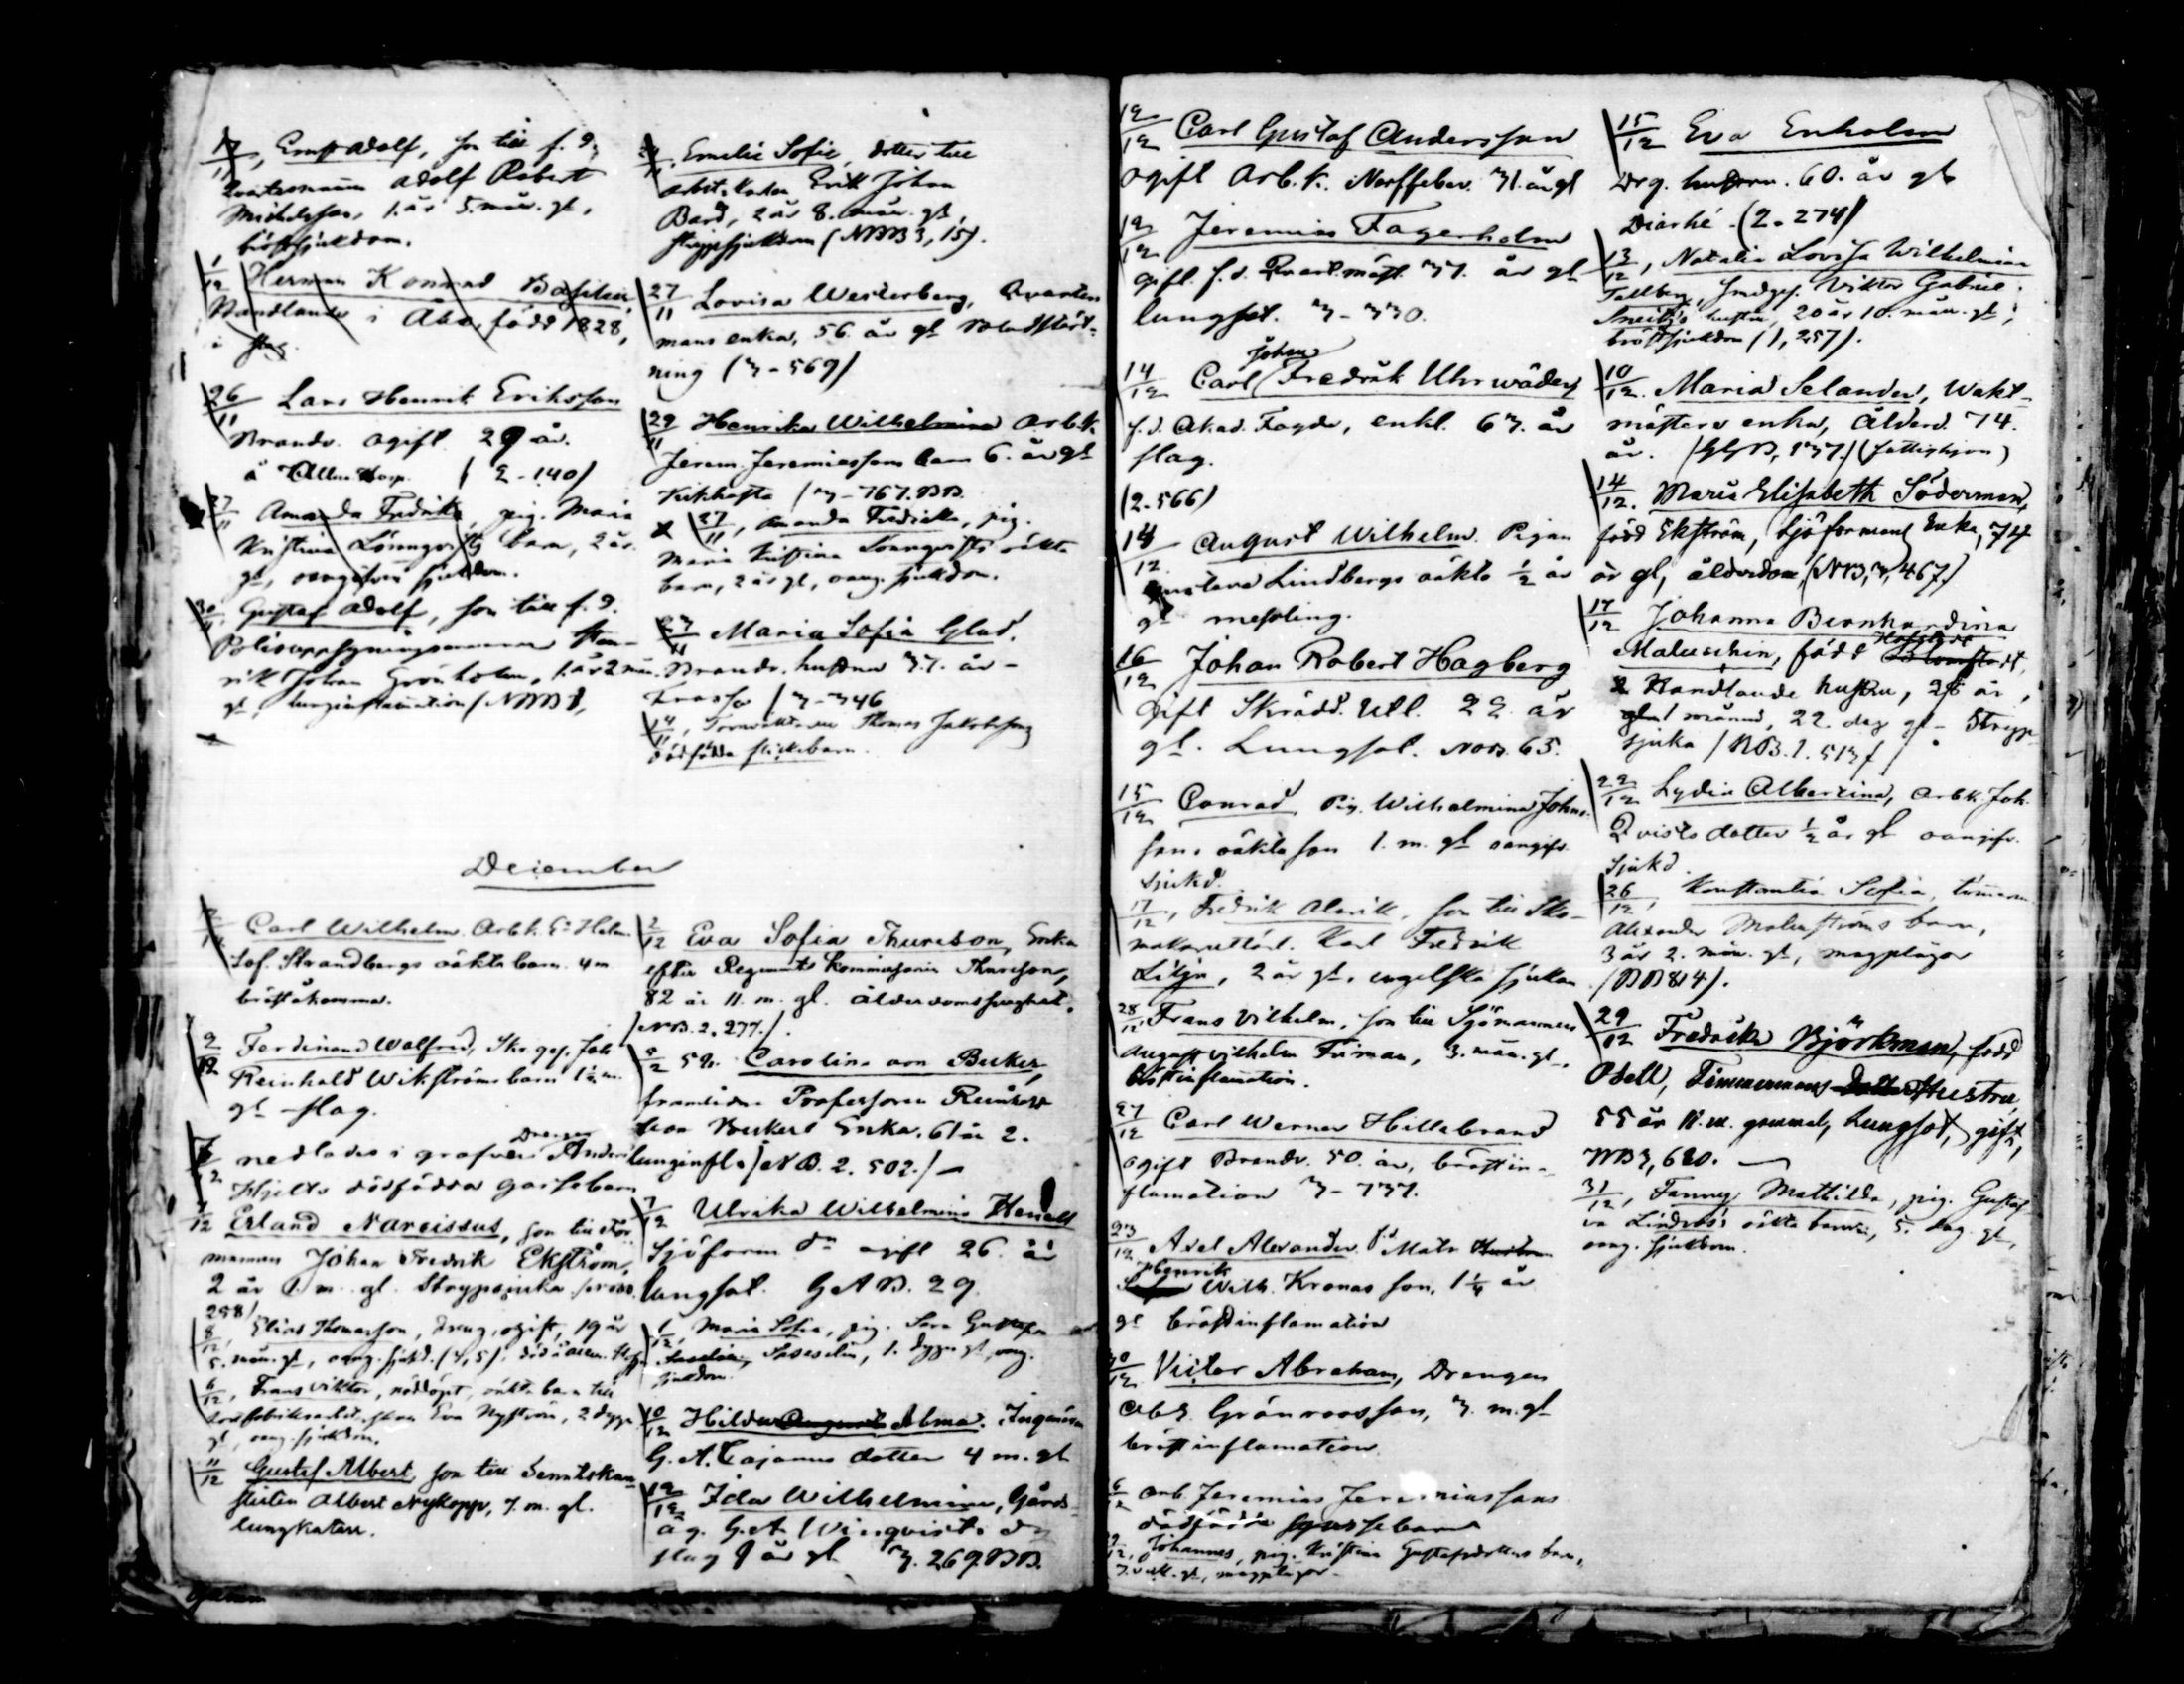 17/11, Ernst Adolf, son till f. d.
Adolf Robert
1. år 5. mån. gl,
bröstsjukdom.
1/12 Herman Konrad
Handlande i Åbo, född 1828,
i slag.
26/11 Lars Henrik Eriksson
Brandv. ogift 29 år.
å (2-140)
27/11 Amanda Fredrika, pig. Maria
Kristina Lönnqvists barn, 2 år
gl, oangifven sjukdom.
30/11 Gustaf Adolf, son till f. d.
Polisuppsyningsmannen Hen-
rik Johan Grönholm, 1. år 2 mån.
gl, lunginflamation (NBB 1,
Emelie Sofie, dotter till
Erik Johan
Bard, 2 år 8. mån. gl,
strypsjukdom (NBB 3, 15).
27/11 Lovisa Westerberg, Qvarter-
mans enka, 56. år gl blodstört-
ning (3-569)
29/11 Henrika Wilhelmina Arb.k.
Jerem. Jeremiassons barn 6. år gl
Kikhosta (3-767. BB.
27/11, Amanda Fredrika, pig.
Maria Kristina Lönnqvists oäkta
barn, 2 år gl, oang. sjukdom.
27/11 Maria Sofia Glad.
Brandv. hustru 37. år -
Frossa (3-346
14/11, Thomas Jakobssons
dödfödda flickebarn.
December
Carl Wilhelm. Arb.k. Helm.
Sof. Strandbergs oäkta barn. 4 m
bröståkomma.
2/12 Ferdinand Walfrid, Skr. ges. Joh.
Reinhold Wikströms barn 1½ m.
gl slag.
nedlades i grafven Drengen Anders
Hjelts dödfödda gossebarn
7/12 Erland Narcissus, son till För-
mannen Johan Fredrik Ekström,
2 år 1 m. gl. Strypsjuka
258)
8/12, Elias Thomasson, dreng, ogift, 19 år
5. mån. gl, oang. sjukd. (4, 5).
6/12, Frans Viktor, nöddöpt, oäkta barn till
Eva Nyström, 2 dygn
gl, oang. sjukdom.
11/12 Gustaf Albert, son till Senatskan-
slisten Albert Nykopp, 7. m. gl.
lungkatarr.
2/12 Eva Sofia Thureson, Enka
efter Regements Kommissarien Thureson,
82 år 11. m. gl. ålderdomssvaghet.
(NB. 2. 277.).
Carolina von Becker,
framlidne Professoren Reinhold
von Beckers Enka. 61 år 2.
lunginfl. (NB. 2. 502.) -
7/12 Ulrika Wilhelmina Henell
Sjöform. dr ogift 26. år
lungsot. GAB. 29.
1/12, Maria Sofia, pig. Sara
1. dygn gl, oang.
sjukdom.
10/12 Hilda Augusta Alma. Ingeniören
G. A. Cajanus dotter 4 m. gl
12/12 Ida Wilhelmina, Gårds-
äg. G. A. Winqvists dr
slag 9 år gl 3. 269. BB.
12/12 Carl Gustaf Andersson
ogift Arb.k. 31. år gl
12/12 Jeremias Fagerholm
gift f. d. Qvart.mäst. 37. år gl
lungsot. 3-330.
14/12 Carl Johan Fredrik Uhrwäder
f. d. Akad. Fogde, enkl. 67. år
slag.
(2-566)
14/12 August Wilhelm. Pigan
Gustava Lindbergs oäkta ½ år
gl messling.
16/12 Johan Robert Hagberg
Gift Skrädd. Utl. 22. år
gl. Lungsot. 65.
15/12 Conrad Pig. Wilhelmina Johns-
sons oäkta son 1. m. gl oangifv.
sjukd.
17/12, Fredrik Alarik, son till Sko-
makareutlärl. Karl Fredrik
Lilja, 2 år gl, engelska sjukan
28/12 Frans Vilhelm, son till Sjömannen
August Vilhelm Firman, 3. mån. gl.
bröstinflamation.
27/12 Carl Werner Hillebrand
ogift Brandv. 50. år, bröstin-
flamation 3-737.
23/12 Axel Alexander. Matr.
Henrik Wilh. Kronas son, 1¼ år
gl bröstinflamation
30/12 Victor Abraham, Drengen
Abr. Grönroos son, 3. m. gl
bröstinflamation.
6/12 Arb. Jeremias Jeremiassons
dödfödda gossebarn
Johannes, pig. Kristina Gustafsdotters barn,
7. veck. gl, magplågor.
15/12 Eva Enholm
Drg. hustru. 60. år gl
Diarhé. (2-274)
13/12, Natalia Lovisa Wilhelmina
Tallberg, Smedges. Viktor Gabriel
hustru, 20 år 10. mån. gl,
bröstsjukdom (1, 257).
10/12. Maria Selander, Wakt-
mästers enka, Ålderd. 74.
år. (fattighjon)
14/12. Maria Elisabeth Söderman,
född Ekström, Sjöformans Enka, 74
år gl, ålderdom (NB, 3, 467)
17/12 Johanna Bernhardina
Maluschin, född
Handlande hustru, 28 år,
1 månad, 22. dag gl - Stryp-
sjuka (NB. 1. 513)
22/12 Lydia Albertina, Arb.k. Joh.
Qvists dotter ½ år gl oangifv.
sjukd.
26/12, Konstantia Sofia, timerm.
Alexander Malmströms barn,
3 år 2. mån. gl, magplågor
(BB 814).
29/12 Fredrika Björkman, född
Odell, Timmermans dotter Hustru
55 år 11. m. gammal, Lungsot, gift,
NB 3, 680.
31/12, Fanny Mathilda, pig. Gusta-
va Lindroos oäkta barn, 5. dag. gl,
oang. sjukdom.